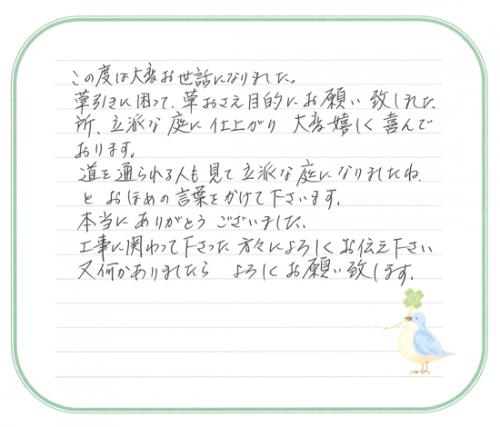 この度は大変お世話になりました。
草引きに困って、草おさえ目的にお願い致しました
所、立派な庭に仕上がり 大変嬉しく喜んで
おります。
道を通られる人も見て立派な庭になりましたね
と おほめの言葉をかけて下さいます。
本当にありがとうございました。
工事に関わって下さった方々によろしくお伝え下さい
又何かありましたら よろしくお願い致します。